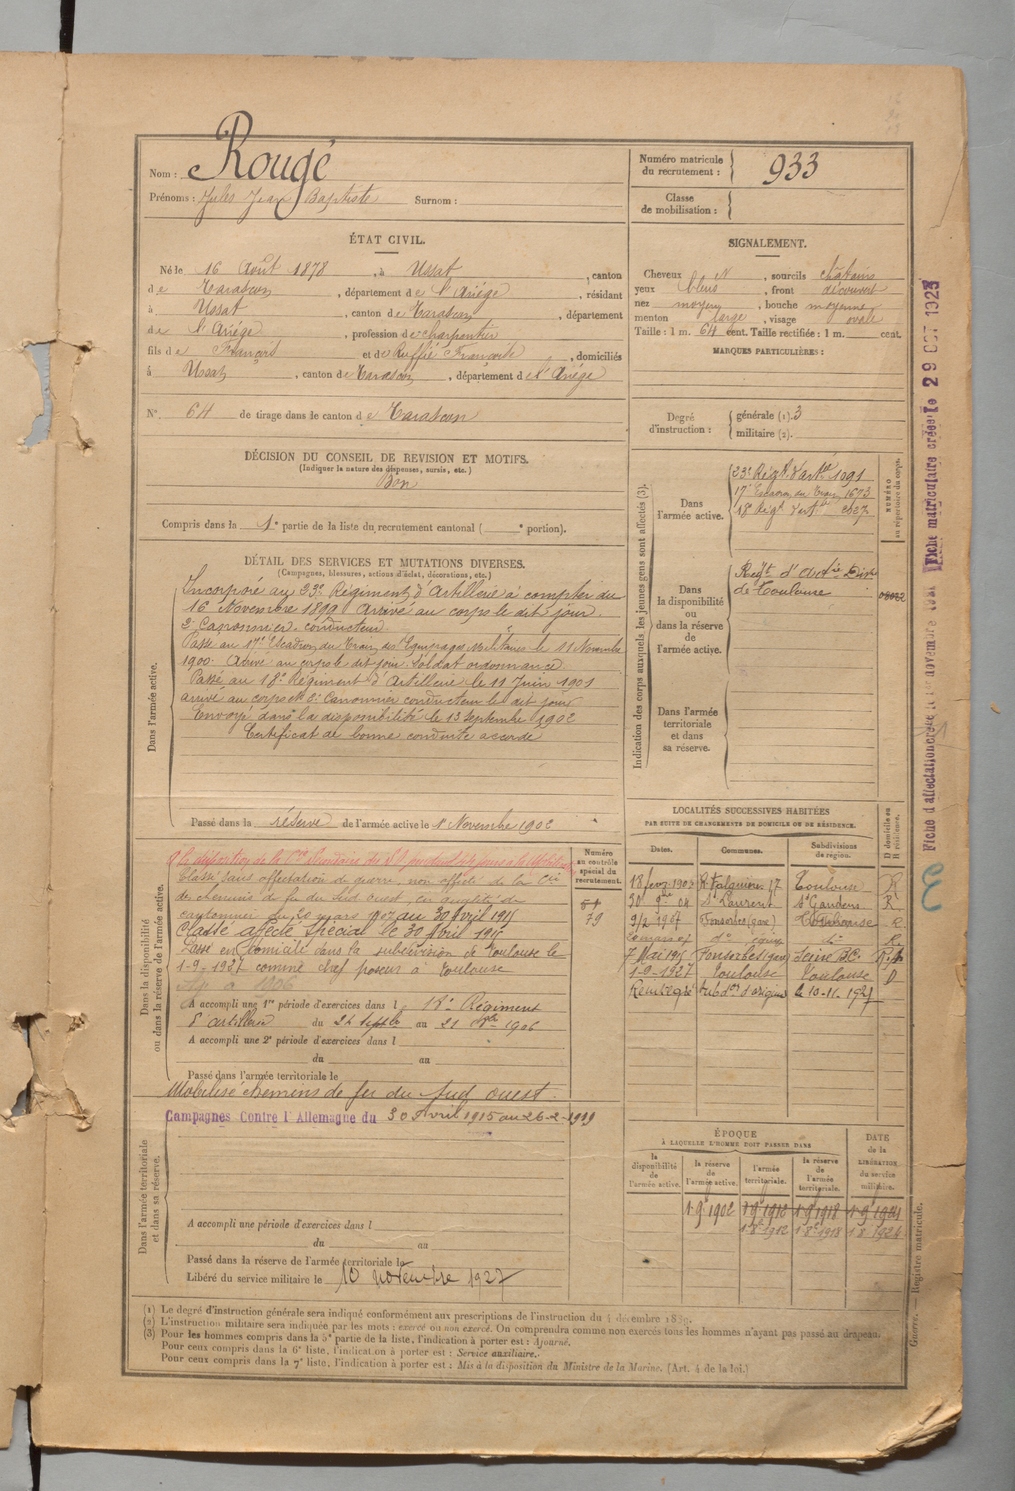 Nom : Rougé
Prénoms : Jules Jean Baptiste Surnom :
Numéro matricule du recrutement : 933
Classe de mobilisation :
ÉTAT CIVIL.
Né le 16 Août 1878, à Ussat, canton
de Tarascon, département de l'Ariège, résidant
à Ussat, canton de Tarascon, département
de l'Ariège, profession de charpentier
fils de François et de Ruffié Françoise, domiciliés
à Ussat, canton de Tarascon, département de l'Ariège
N° 64 de tirage dans le canton de Tarascon
SIGNALEMENT.
Cheveux N, sourcils châtains
yeux bleus, front découvert
nez moyen, bouche moyenne
menton large, visage ovale
Taille : 1 m. 64 cent. Taille rectifiée : 1 m. cent.
MARQUES PARTICULIÈRES :
Degré d'instruction : générale (1). 3
militaire (2).
DÉCISION DU CONSEIL DE REVISION ET MOTIFS.
(Indiquer la nature des dispenses, sursis, etc.)
Bon
Compris dans la 1e partie de la liste du recrutement cantonal ( e portion).
DÉTAIL DES SERVICES ET MUTATIONS DIVERSES.
(Campagnes, blessures, actions d'éclat, décorations, etc.)
Dans l'armée active.
Incorporé au 23e Régiment d'Artillerie à compter du
16 Novembre 1899 Arrivé au corps le dit jour
2e Canonnier conducteur
Passé au 17e Escadron du Train des Equipages Militaires le 11 Novembre
1900 Arrivé au corps le dit jour Soldat ordonnance
Passé au 18e Régiment d'Artillerie le 11 Juin 1901
arrivé au corps et 2e Canonnier conducteur le dit jour
Envoyé dans la disponibilité le 13 Septembre 1902
Certificat de bonne conduite accordé
Passé dans la réserve de l'armée active le 1r Novembre 1902
Indication des corps auxquels les jeunes gens sont affectés (3).
NUMÉRO au répertoire du corps.
Dans l'armée active.
23e Régt d'artie 1091
17e Escadron du Train 1673
18e Régt d'artie 2027
Dans la disponibilité ou dans la réserve de l'armée active.
Regt d'Artie
de Toulouse
Dans l'armée territoriale et dans sa réserve.
LOCALITÉS SUCCESSIVES HABITÉES
PAR SUITE DE CHANGEMENTS DE DOMICILE OU DE RÉSIDENCE.
Dates. Communes. Subdivisions de région. D domicile ou R résidence.
18 fevr 1903 17 Toulouse R
04 St Laurent St Gaudens R
9/2 1907 Fonsorbes (gare) Toulouse R
7 Mai 1915 Fonsorbes (gare)
1-9-1927 Toulouse Toulouse D
Réintégré subdon d'origine le 10-11-1927
Dans la disponibilité ou dans la réserve de l'armée active.
Numéro au contrôle spécial du recrutement.
79
Classé sans affectation de guerre, non affecté de la Cie
des chemins de fer du Sud Ouest, en qualité de
cantonnier du 20 mars 1907 au 30 Avril 1915
Classé affecté spécial le 30 Avril 1915
Passé en domicile dans la subdivision de Toulouse le
1-9-1927 comme chef poseur à Toulouse
A accompli une 1re période d'exercices dans l 18e Régiment
d'artillerie du 24 Septbre au 21 1906
A accompli une 2e période d'exercices dans l
du au
Passé dans l'armée territoriale le
Mobilisé chemins de fer du Sud ouest.
Campagnes Contre l'Allemagne du 30 Avril 1915 au 26-2-1919
Dans l'armée territoriale et dans sa réserve.
A accompli une période d'exercices dans l
du au
Passé dans la réserve de l'armée territoriale le
Libéré du service militaire le 10 novembre 1927
ÉPOQUE
À LAQUELLE L'HOMME DOIT PASSER DANS
DATE de la LIBÉRATION du service militaire.
la disponibilité de l'armée active. la réserve de l'armée active. l'armée territoriale. la réserve de l'armée territoriale.
1-9e 1902 1-9e 1912 1-9e 1918 1-9e 1924
1-8e 1912 1-8e 1918 1-8 1924
(1) Le degré d'instruction générale sera indiqué conformément aux prescriptions de l'instruction du 4 décembre 1889.
(2) L'instruction militaire sera indiquée par les mots : exercé ou non exercé. On comprendra comme non exercés tous les hommes n'ayant pas passé au drapeau.
(3) Pour les hommes compris dans la 5e partie de la liste, l'indication à porter est : Ajourné.
Pour ceux compris dans la 6e liste, l'indication à porter est : Service auxiliaire.
Pour ceux compris dans la 7e liste, l'indication à porter est : Mis à la disposition du Ministre de la Marine. (Art. 4 de la loi.)
Guerre. — Registre matricule.
Fiche matriculaire créée le 29 OCT 1923